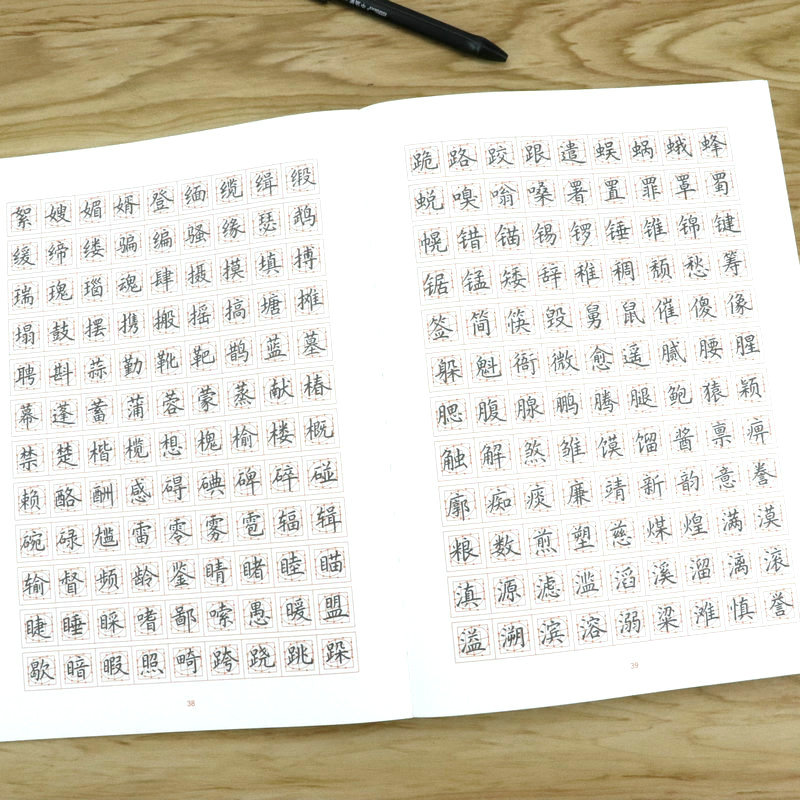 絮嫂媚婿登缅缆缉缎
缓缔缕骗编骚缘瑟鹉
瑞瑰瑙魂肆摄摸填搏
塌鼓摆携搬摇搞塘摊
聘斟蒜勤靴靶鹊蓝墓
幕蓬蓄蒲蓉蒙蒸献椿
禁楚楷榄想槐榆楼概
赖酪酬感碍碘碑碎碰
碗碌尴雷零雾雹辐辑
输督频龄鉴睛睹睦瞄
睫睡睬嗜鄙嗦愚暖盟
歇暗暇照畸跨跷跳跺
38
跪路跤跟遣蜈蜗蛾蜂
蜕嗅嗡嗓署置罪罩蜀
幌错锚锡锣锤锥锦键
锯锰矮辞稚稠颓愁筹
签简筷毁舅鼠催傻像
躲魁衙微愈遥腻腰腥
腮腹腺鹏腾腿鲍猿颖
触解煞雏馍馏酱禀痹
廓痴痰廉靖新韵意誊
粮数煎塑慈煤煌满漠
滇源滤滥滔溪溜漓滚
溢溯滨溶溺粱滩慎誉
39